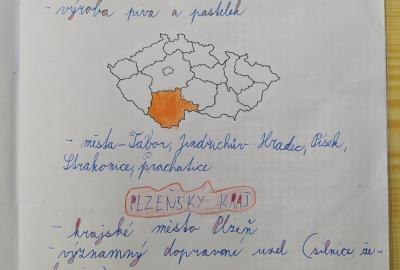 - výroba piva a pastelek
- města - Tábor, Jindrichův Hradec, Písek,
Strakonice, Prachatice
PLZEŇSKÝ KRAJ
- krajské město Plzeň
- významný dopravní uzel (silnice, že-